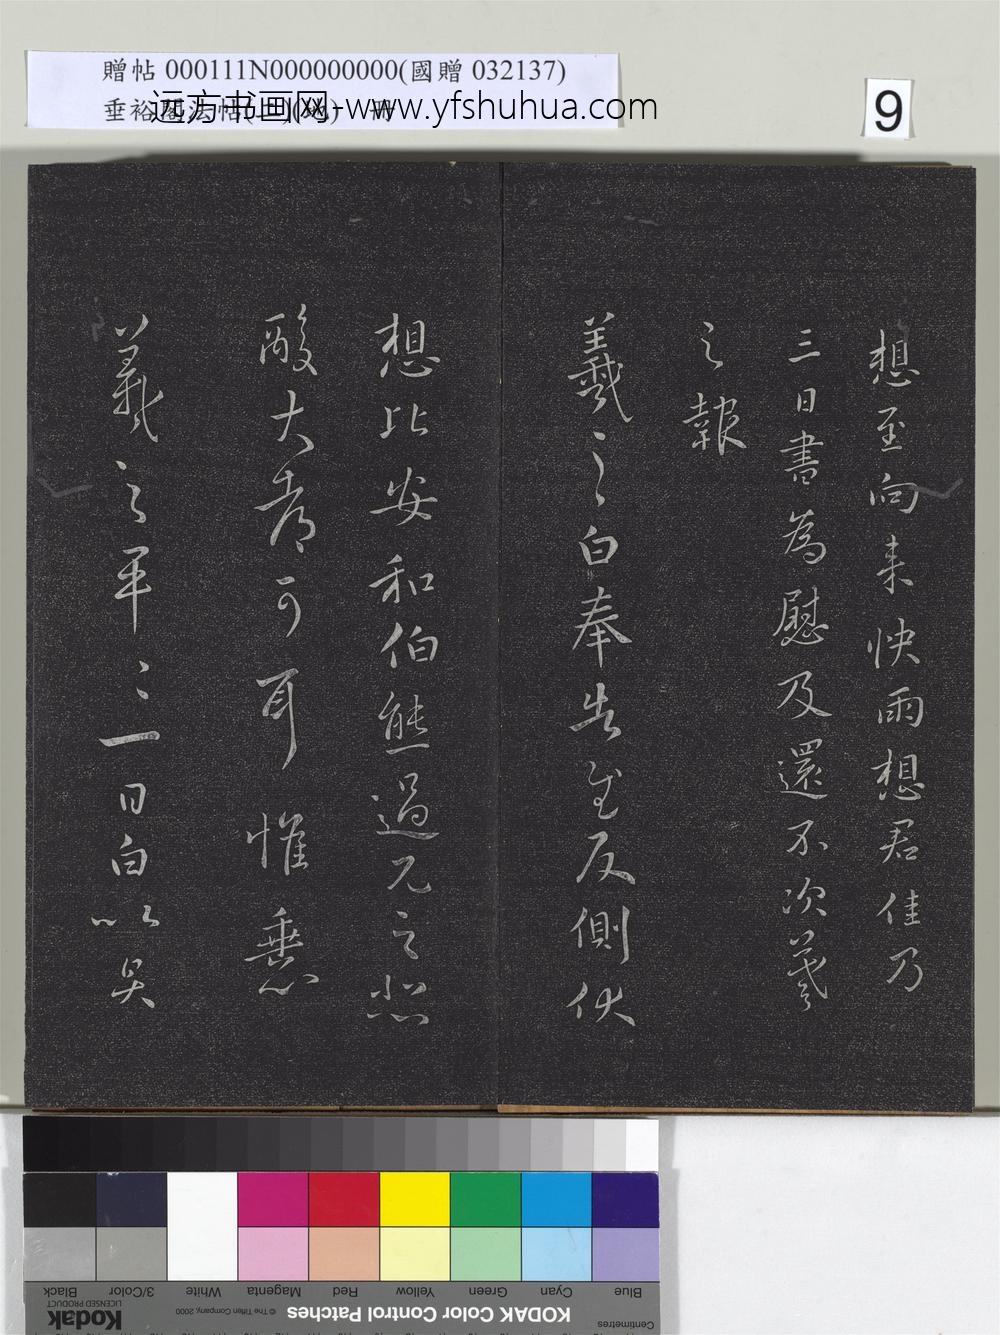 贈帖 000111N000000000(國贈 032137)
垂裕閣法帖
远方书画网-www.yfshuhua.com
9
想至向来快雨想君佳乃
三日書為慰及還不次羲
之報
羲之白奉告至反側伏
想比安和伯熊過兄之悲
酸大都可耳惟垂心
羲之平平一日白以具
Blue Cyan Green Yellow Red Magenta White 3/Color Black
Centimetres KODAK Color Control Patches © The Tiffen Company, 2000 Kodak LICENSED PRODUCT